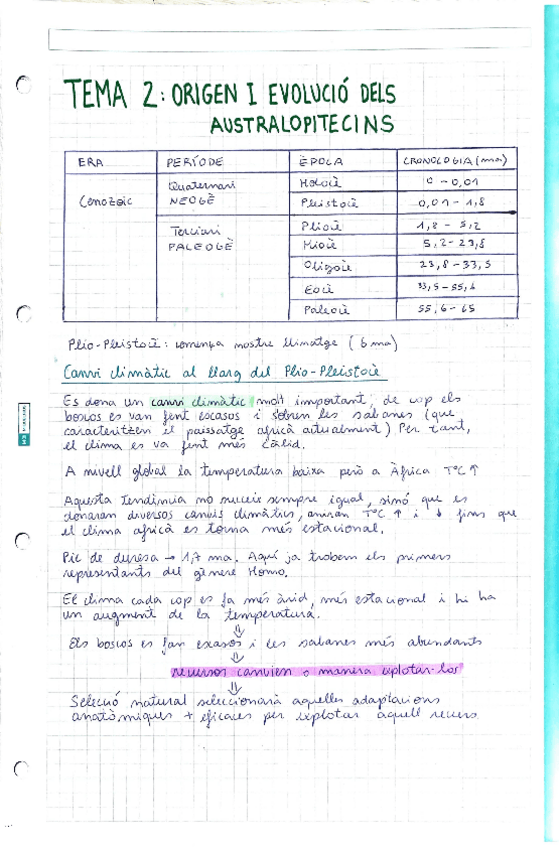 TEMA 2: ORIGEN I EVOLUCIÓ DELS
AUSTRALOPITECINS
ERA PERÍODE ÈPOLA CRONOLOGIA (ma)
Cenozoic Quaternari NEOGÈ Holocè 0 - 0,01
Pleistocè 0,01 - 1,8
Terciari PALEOGÈ Pliocè 1,8 - 5,2
Miocè 5,2 - 23,8
Oligocè 23,8 - 33,5
Eocè 33,5 - 55,6
Paleocè 55,6 - 65
Plio-Pleistocè: comença nostre llinatge (6 ma)
Canvi climàtic al llarg del Plio-Pleistocè
Es dona un canvi climàtic molt important, de cop els
boscos es van fent escasos i sobren les sabanes (que
caracteritzen el paisatge africà actualment) Per tant,
el clima es va fent més càlid.
A nivell global la temperatura baixa però a Àfrica TºC ↑
Aquesta tendència no succeix sempre igual, sinó que es
donaran diversos canvis climàtics, aniran TºC ↑ i ↓ fins que
el clima africà es torna més estacional.
Pic de duresa → 1,7 ma. Aquí ja trobem els primers
representants del gènere Homo.
El clima cada cop es fa més àrid, més estacional i hi ha
un augment de la temperatura.
⇓
Els boscos es fan escasos i les sabanes més abundants
⇓
recursos canvien o manera explotar-los
⇓
Selecció natural seleccionarà aquelles adaptacions
anatòmiques + eficaces per explotar aquell recurs